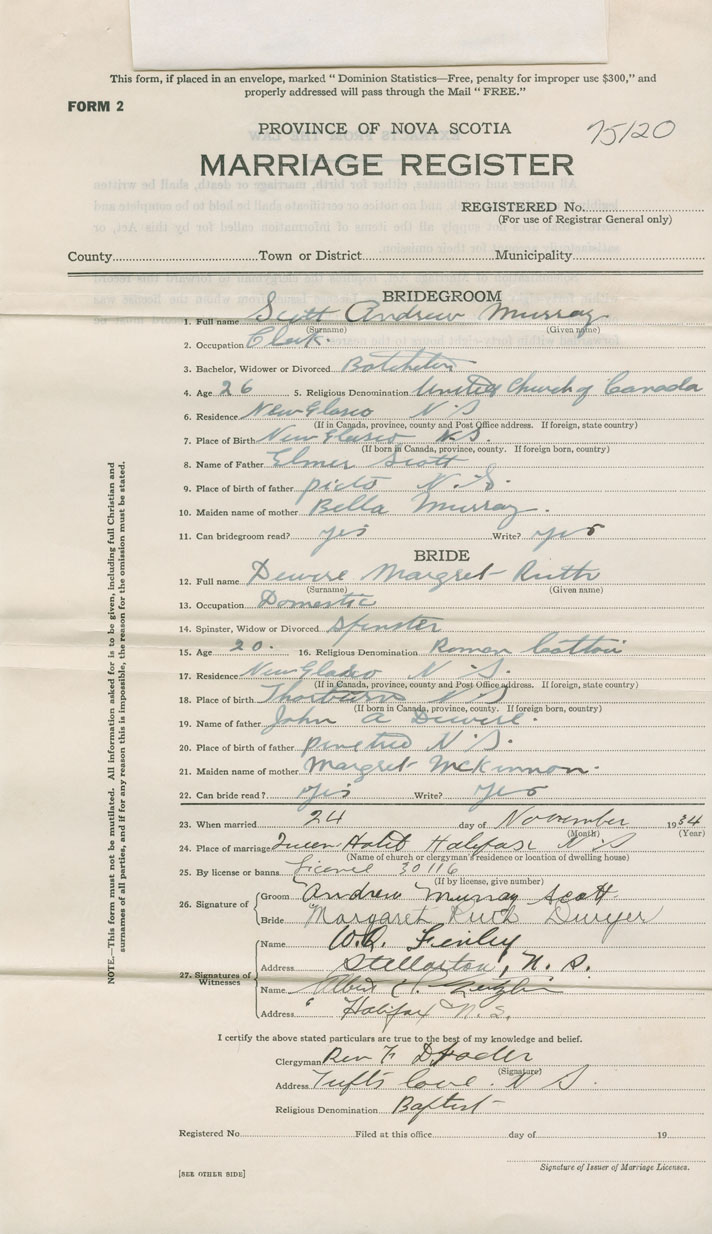 This form, if placed in an envelope, marked “ Dominion Statistics—Free, penalty for improper use $300,” and
properly addressed will pass through the Mail “ FREE.”
FORM 2
PROVINCE OF NOVA SCOTIA
75120
MARRIAGE REGISTER
REGISTERED No.
(For use of Registrar General only)
County Town or District Municipality
BRIDEGROOM
1. Full name Scott Andrew Murray
(Surname) (Given name)
2. Occupation Clerk.
3. Bachelor, Widower or Divorced
4. Age 26 5. Religious Denomination United Church of Canada
6. Residence New Glasco N S
(If in Canada, province, county and Post Office address. If foreign, state country)
7. Place of Birth New Glasco N.S.
(If born in Canada, province, county. If foreign born, country)
8. Name of Father Elmer Scott
9. Place of birth of father picto N. S.
10. Maiden name of mother Bella Murray.
11. Can bridegroom read? yes Write? yes
BRIDE
12. Full name Dewire Margret Ruth
(Surname) (Given name)
13. Occupation Domestic
14. Spinster, Widow or Divorced Spinster
15. Age 20. 16. Religious Denomination Roman
17. Residence New Glasco N S.
(If in Canada, province, county and Post Office address. If foreign, state country)
18. Place of birth Thorburn N S
(If born in Canada, province, county. If foreign born, country)
19. Name of father John A Dewire.
20. Place of birth of father N S.
21. Maiden name of mother Margret McKinnon.
22. Can bride read? yes Write? yes
23. When married 24 day of November 1934
(Month) (Year)
24. Place of marriage Queen Hotel Halifax N S
(Name of church or clergyman's residence or location of dwelling house)
25. By license or banns License 30116
(If by license, give number)
26. Signature of Groom Andrew Murray Scott
Bride Margaret Ruth Dwyer
27. Signatures of Witnesses
Name W.R. Fenley
Address Stellarton, N. S.
Name Albert
Address Halifax N. S.
I certify the above stated particulars are true to the best of my knowledge and belief.
Clergyman Rev F
(Signature)
Address Tufts Cove. N S.
Religious Denomination Baptist
Registered No. Filed at this office day of 19
Signature of Issuer of Marriage Licenses.
[SEE OTHER SIDE]
NOTE.—This form must not be mutilated. All information asked for is to be given, including full Christian and
surnames of all parties, and if for any reason this is impossible, the reason for the omission must be stated.